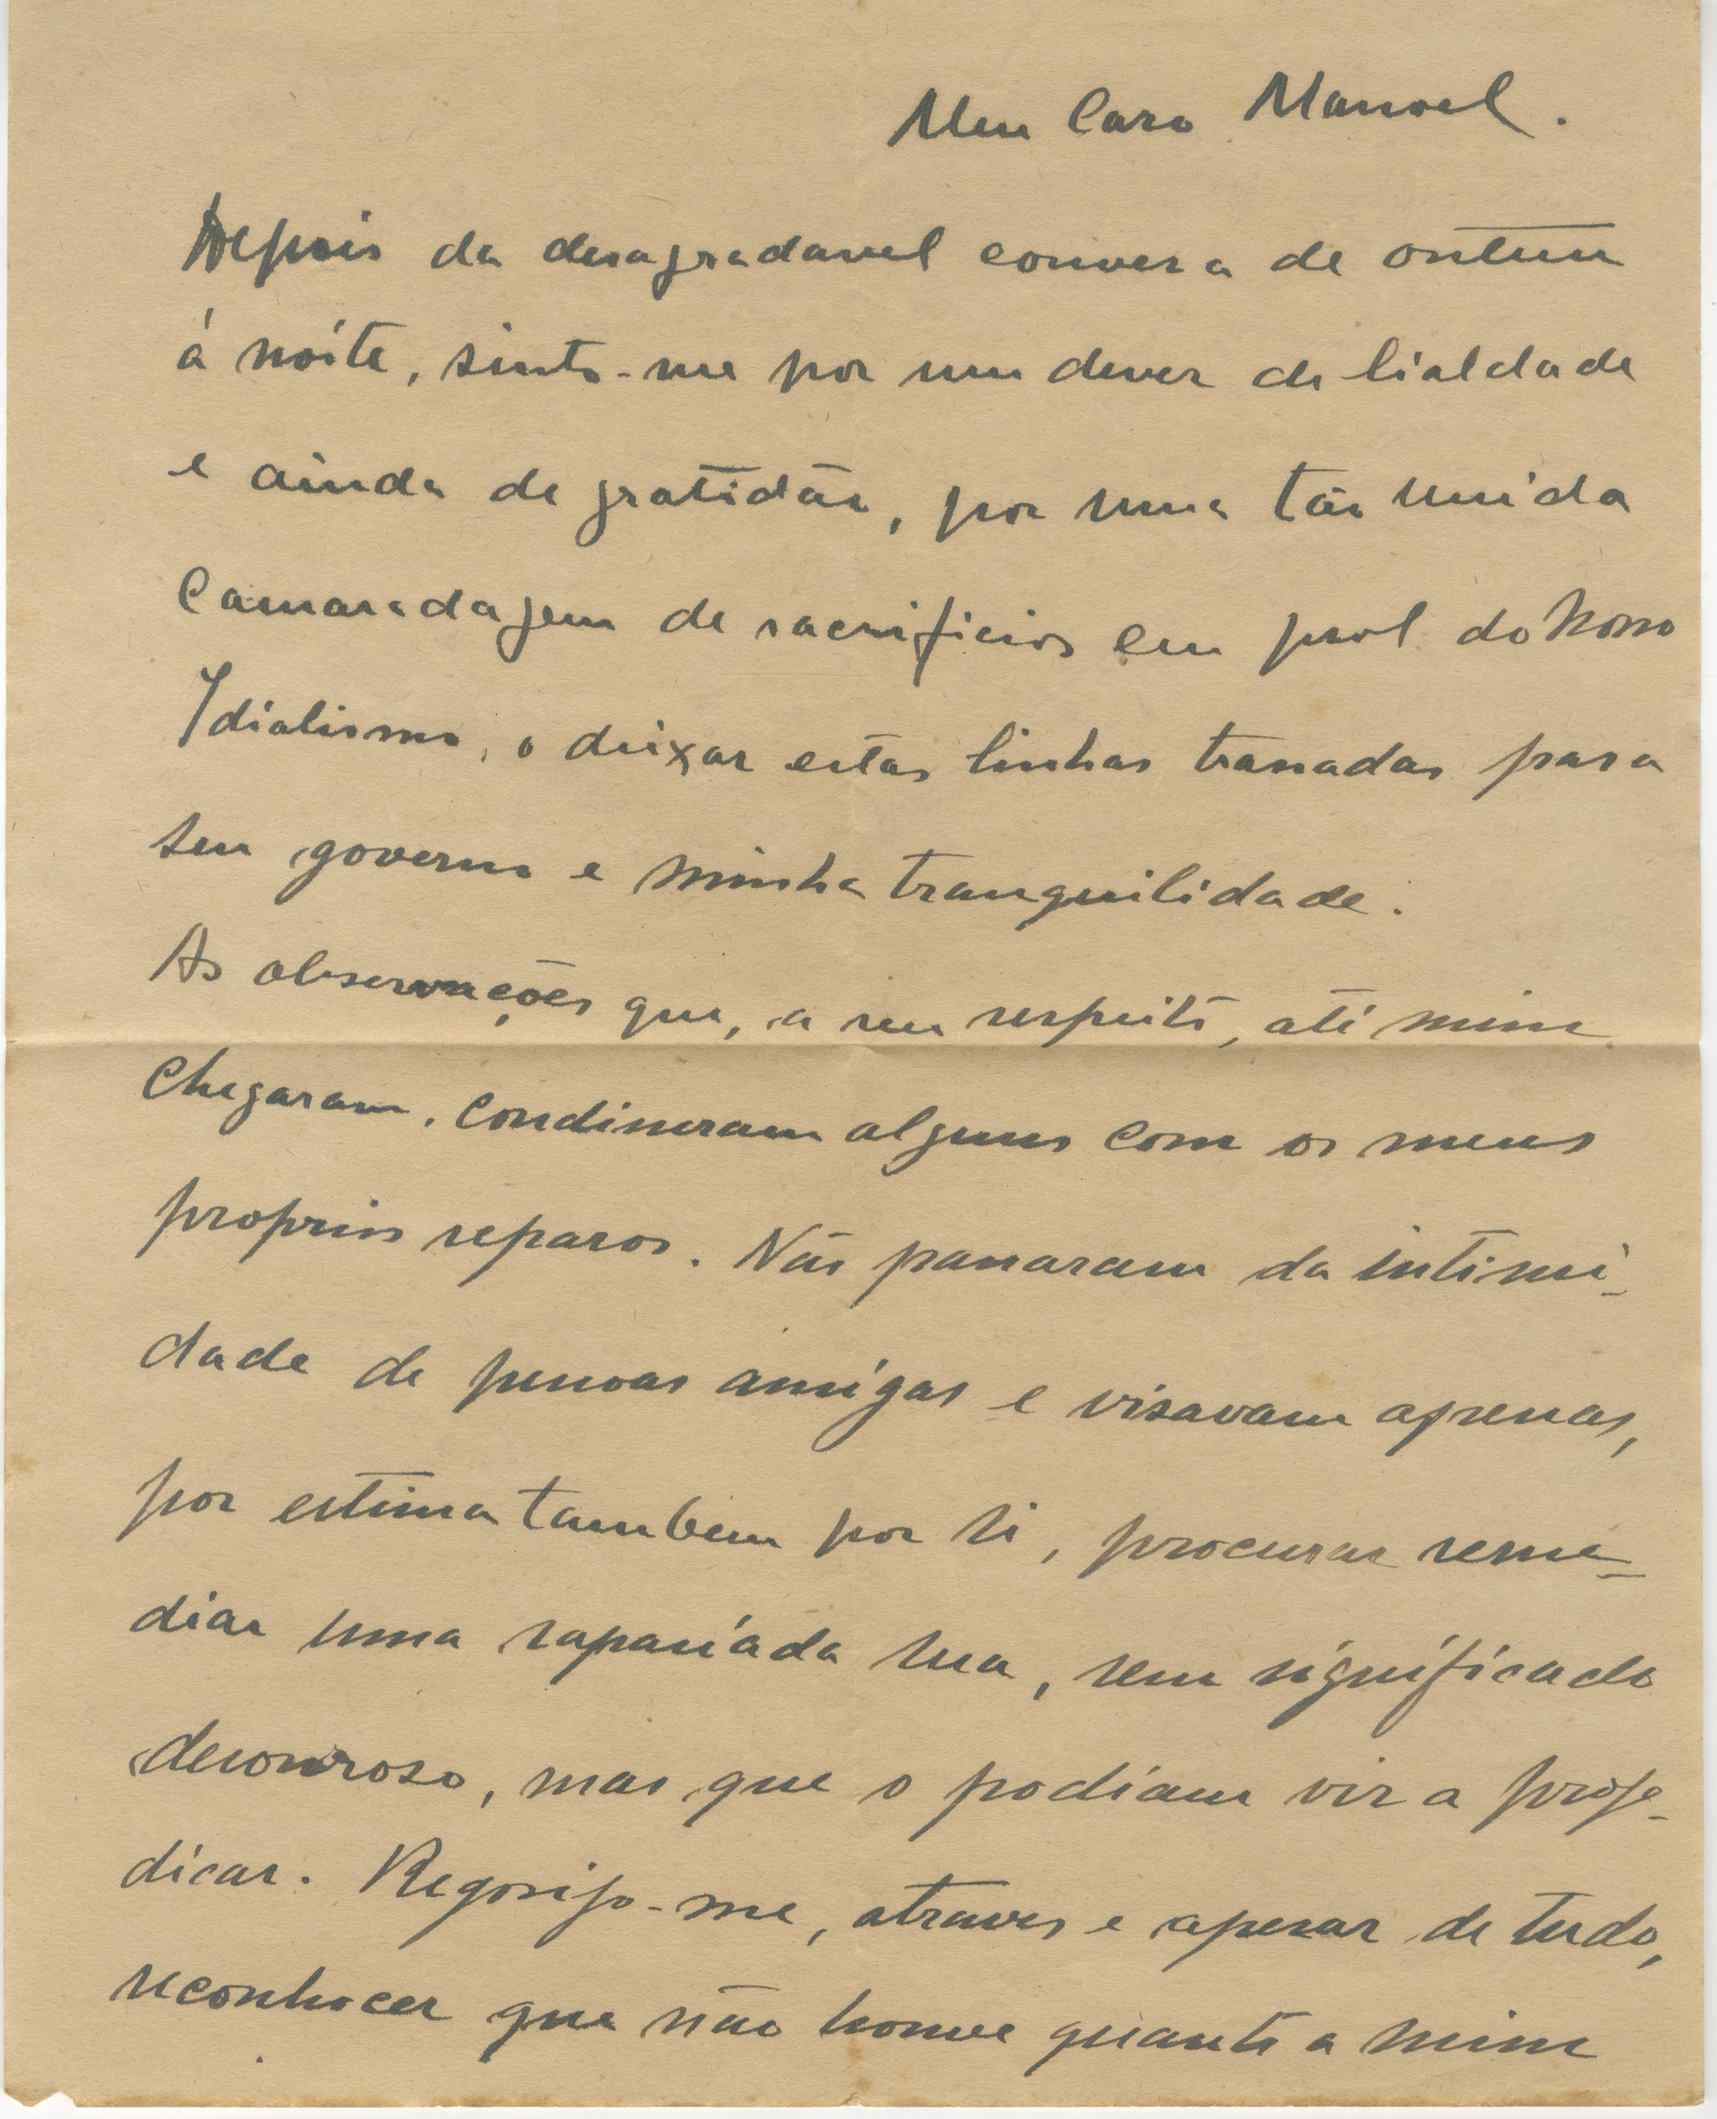 Meu Caro Manoel.
Depois da desagradavel conversa de ontem
á noite, sinto-me por um dever de lialdade
e ainda de gratidão, por uma tão unida
Camaradagem de sacrificios em prol do Nosso
Idialismo, o deixar estas linhas trassadas para
seu governo e minha tranquilidade.
As observações que, a seu respeito, até mim
chegaram, condiseram alguns com os meus
proprios reparos. Não passaram da intimi-
dade de pessoas amigas e visavam apenas,
por estima tambem por si, procurar reme-
diar uma rapasiada sua, sem significado
desonroso, mas que o podiam vir a proje-
dicar. Regosijo-me, atraves e apesar de tudo,
reconhecer que não houve quanto a mim